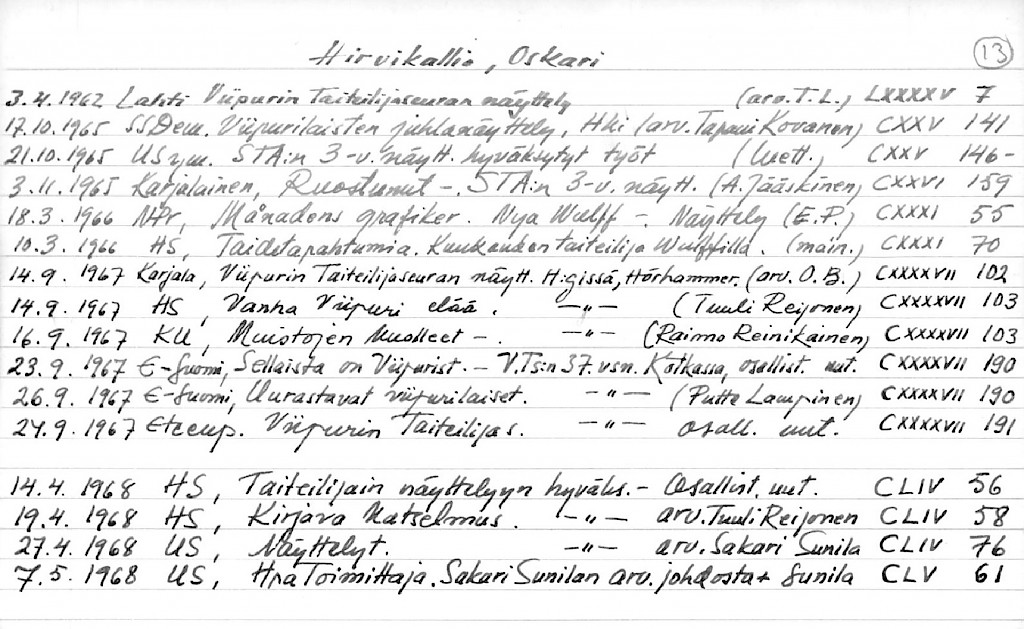 Hirvikallio, Oskari 13
3.4.1962 Lahti Viipurin Taiteilijaseuran näyttely (arv. T.L.) LXXXXV 7
17.10.1965 SSDem. Viipurilaisten juhlanäyttely, Hki (arv. Tapani Kovanen) CXXV 141
21.10.1965 US ym. STA:n 3-v. näytt. hyväksytyt työt (luett.) CXXV 146-
3.11.1965 Karjalainen, Ruostunut -, STA:n 3-v. näytt. (A. Jääskinen) CXXVI 159
18.3.1966 NPr, Månadens grafiker. Nya Wulff - Näyttely (E.P.) CXXXI 55
10.3.1966 HS, Taidetapahtumia. Kuukauden taiteilija Wulffilla. (main.) CXXXI 70
14.9.1967 Karjala, Viipurin Taiteilijaseuran näytt. H:gissä, Hörhammer. (arv. O.B.) CXXXXVII 102
14.9.1967 HS, Vanha Viipuri elää. -"- (Tuuli Reijonen) CXXXXVII 103
16.9.1967 KU, Muistojen kuolleet -. -"- (Raimo Reinikainen) CXXXXVII 103
23.9.1967 E-Suomi, Sellaista on Viipurist. - V.Ts:n 37. vsn. Kotkassa, osallist. uut. CXXXXVII 190
26.9.1967 E-Suomi, Uurastavat viipurilaiset. -"- (Putte Lampinen) CXXXXVII 190
24.9.1967 Eteenp. Viipurin Taiteilijas. -"- osall. uut. CXXXXVII 191
14.4.1968 HS, Taiteilijain näyttelyyn hyväks. - Osallist. uut. CLIV 56
19.4.1968 HS, Kirjava katselmus. -"- arv. Tuuli Reijonen CLIV 58
27.4.1968 US, Näyttelyt. -"- arv. Sakari Sunila CLIV 76
7.5.1968 US, Hra Toimittaja. Sakari Sunilan arv. johdosta + Sunila CLV 61